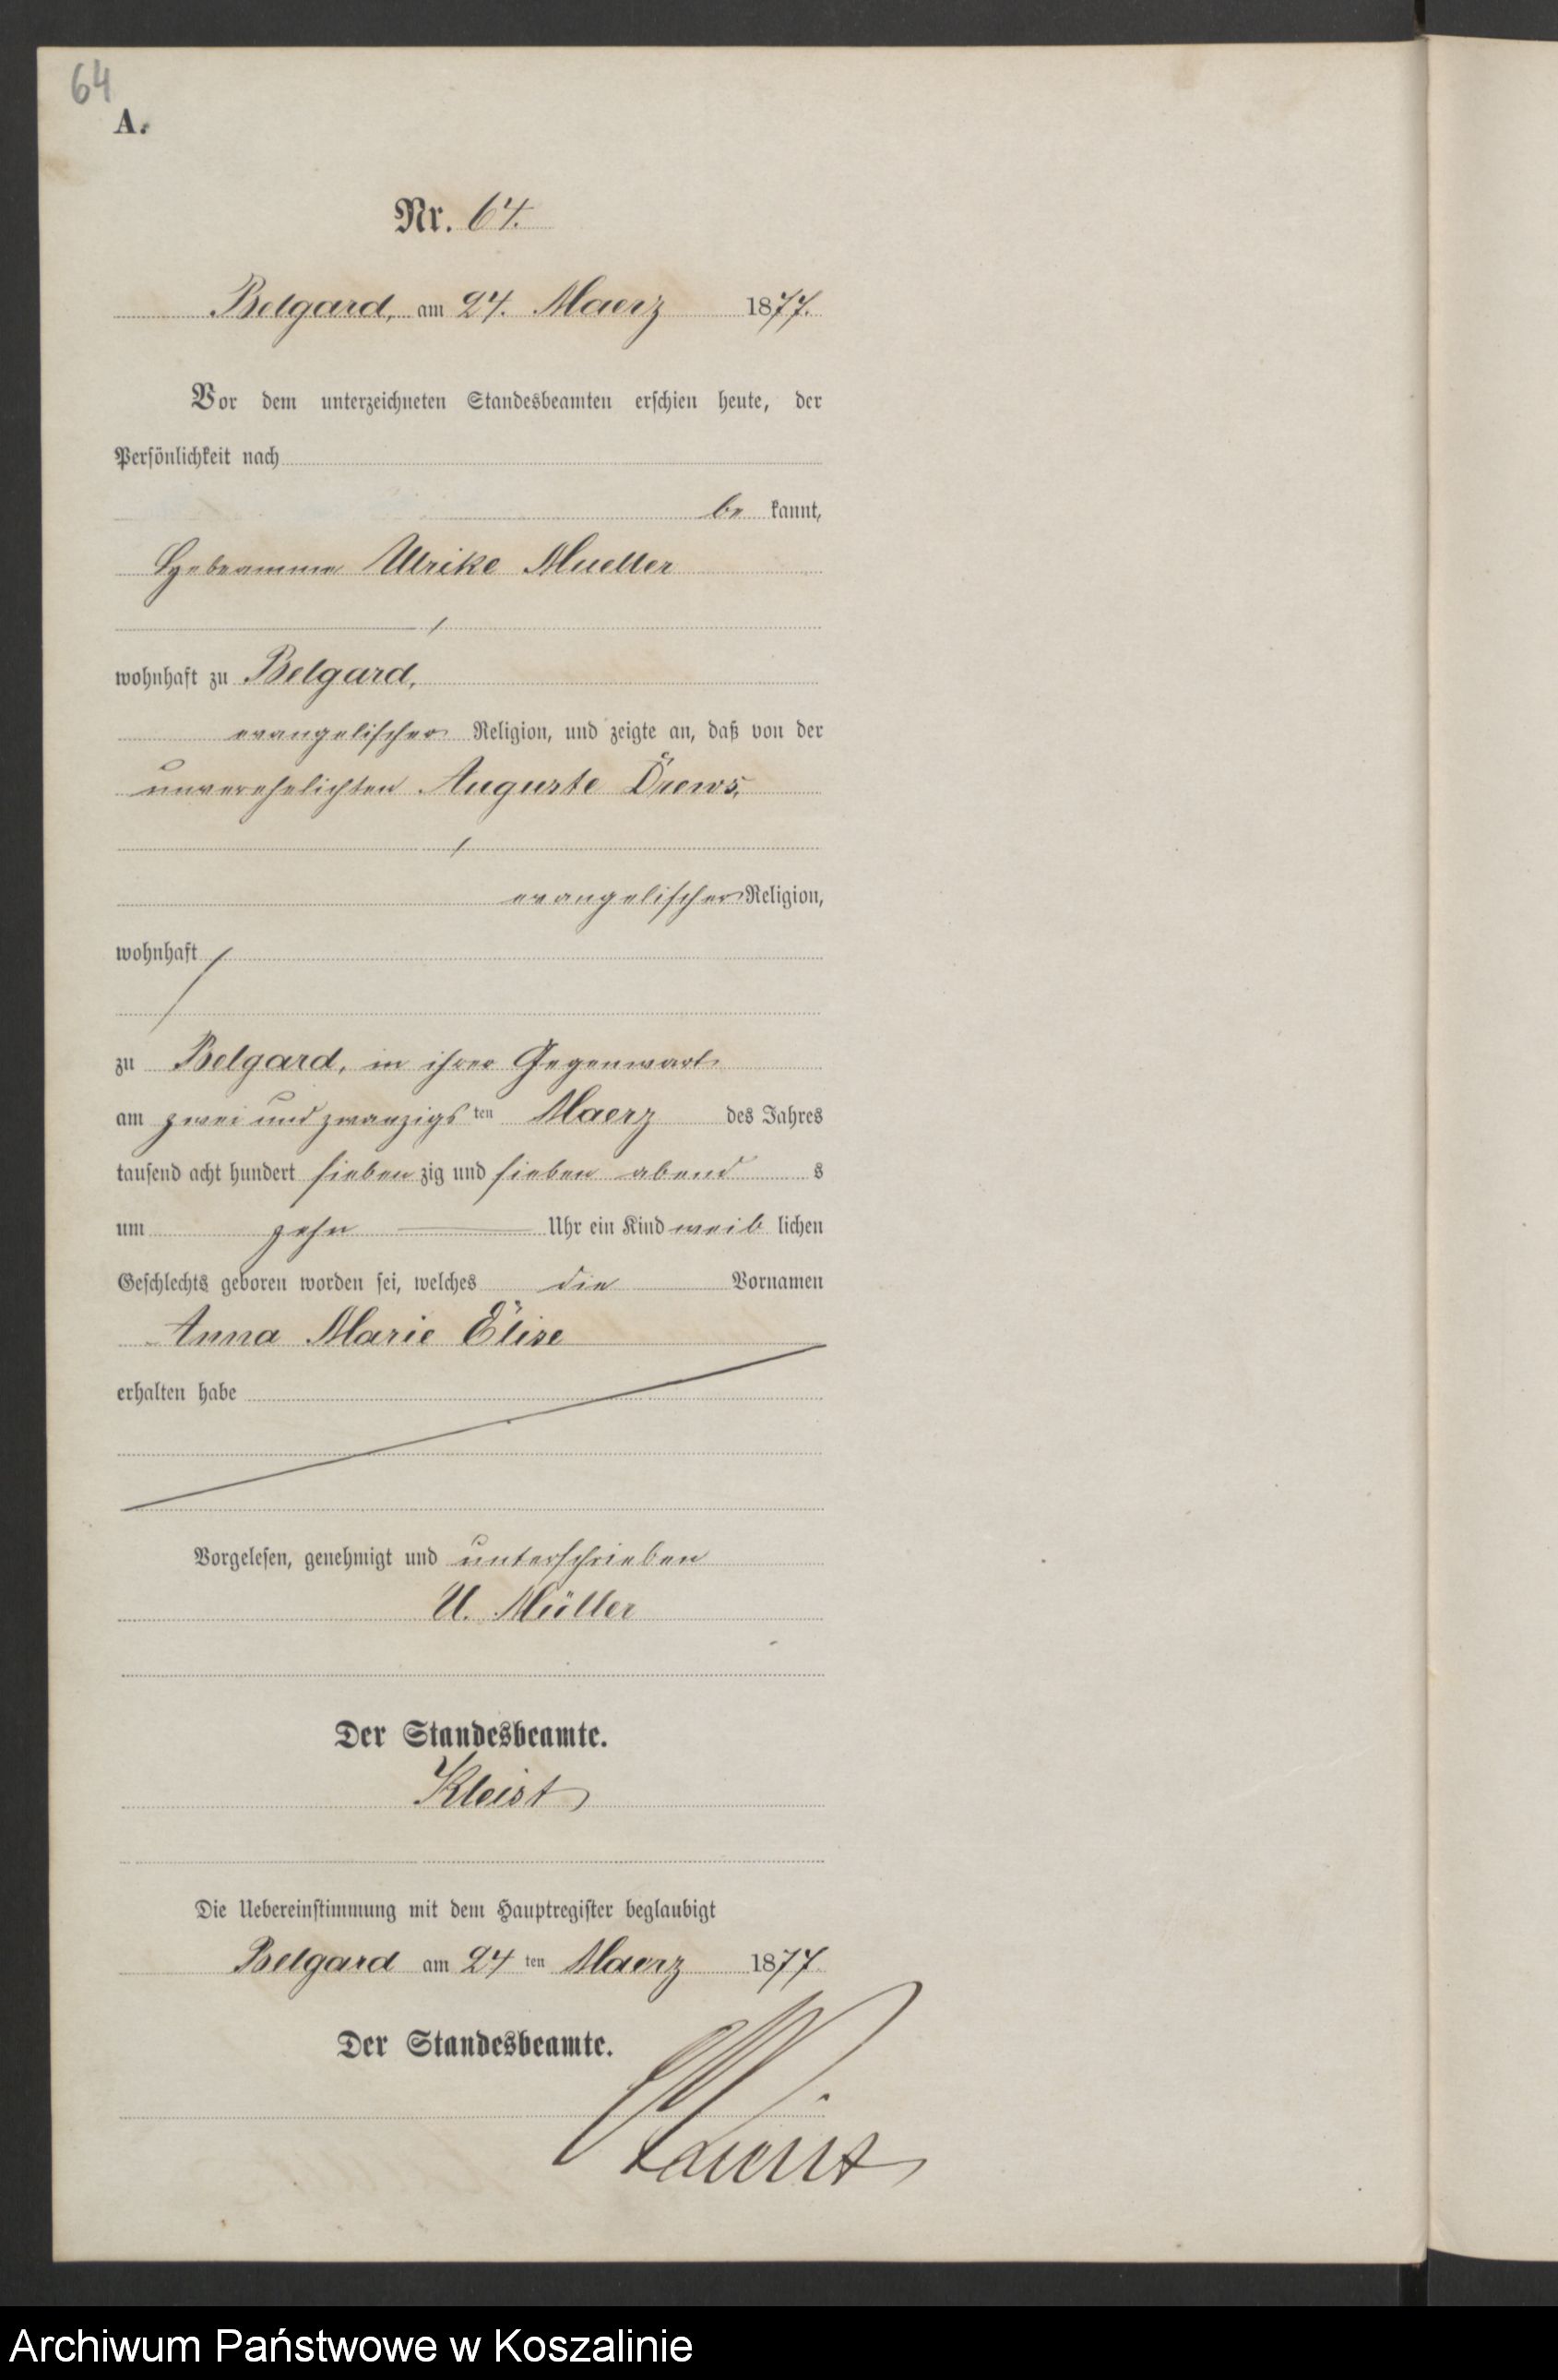 64
A.
Nr. 64.
Belgard, am 24. Maerz 1877.
Vor dem unterzeichneten Standesbeamten erschien heute, der
Persönlichkeit nach
be kannt,
Hebeamme Ulrike Mueller
wohnhaft zu Belgard,
evangelischer Religion, und zeigte an, daß von der
unverehelichten Auguste Drews,
evangelischer Religion,
wohnhaft
zu Belgard, in ihrer Gegenwart
am zwei und zwanzigs ten Maerz des Jahres
tausend acht hundert sieben zig und sieben abend s
um zehn Uhr ein Kind weib lichen
Geschlechts geboren worden sei, welches die Vornamen
Anna Marie Elise
erhalten habe
Vorgelesen, genehmigt und unterschrieben
U. Müller
Der Standesbeamte.
Kleist
Die Uebereinstimmung mit dem Hauptregister beglaubigt
Belgard am 24 ten Maerz 1877
Der Standesbeamte.
Kleist
Archiwum Państwowe w Koszalinie